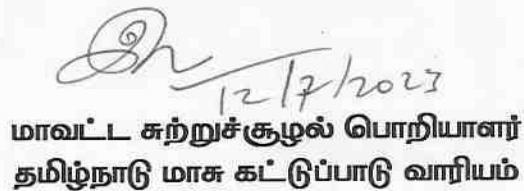 12/7/2023
மாவட்ட சுற்றுச்சூழல் பொறியாளர்
தமிழ்நாடு மாசு கட்டுப்பாடு வாரியம்